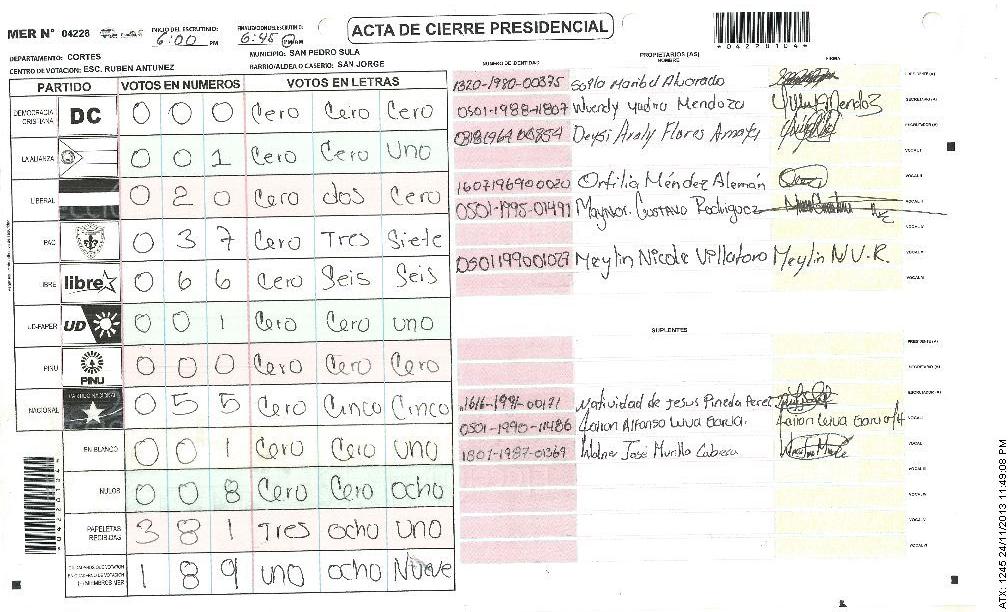 MER N° 04228
INICIO DEL ESCRUTINIO: 6:00 PM
FINALIZACION DEL ESCRUTINIO: 6:45 PM
ACTA DE CIERRE PRESIDENCIAL
*04228104*
DEPARTAMENTO: CORTES
MUNICIPIO: SAN PEDRO SULA
CENTRO DE VOTACION: ESC. RUBEN ANTUNEZ
BARRIO/ALDEA O CASERIO: SAN JORGE
PARTIDO VOTOS EN NUMEROS VOTOS EN LETRAS
DEMOCRACIA CRISTIANA DC 0 0 0 Cero Cero Cero
LA ALIANZA 0 0 1 Cero Cero Uno
LIBERAL 0 2 0 Cero dos Cero
PAC 0 3 7 Cero Tres Siete
LIBRE libre 0 6 6 Cero Seis Seis
UD-FAPER UD 0 0 1 Cero Cero uno
PINU PINU 0 0 0 Cero Cero Cero
NACIONAL PARTIDO NACIONAL 0 5 5 Cero Cinco Cinco
EN BLANCO 0 0 1 Cero Cero uno
NULOS 0 0 8 Cero Cero ocho
PAPELETAS RECIBIDAS 3 8 1 Tres ocho uno
1 8 9 uno ocho Nueve
NUMERO DE IDENTIDAD PROPIETARIOS (AS) NOMBRE FIRMA
1320-1980-00375 Maribel Alvarado PRESIDENTE (A)
0501-1988-11807 Wendy Yadira Mendoza SECRETARIO (A)
Deysi Araly Flores ESCRUTADOR (A)
VOCAL I
1607196900020 Orfilia Méndez Alemán VOCAL II
0501-1995-01491 Maynor Gustavo Rodriguez
0501199001029 Meylin Nicole Villatoro Meylin N V.R.
SUPLENTES
PRESIDENTE (A)
SECRETARIO (A)
1616-1991-00171 Natividad de Jesus Pineda Perez ESCRUTADOR (A)
0501-1990-11486 Alfonso Leiva Garcia
1801-1987-01369 Jose Murillo Cabrera
ATX: 1245 24/11/2013 11:49:08 PM